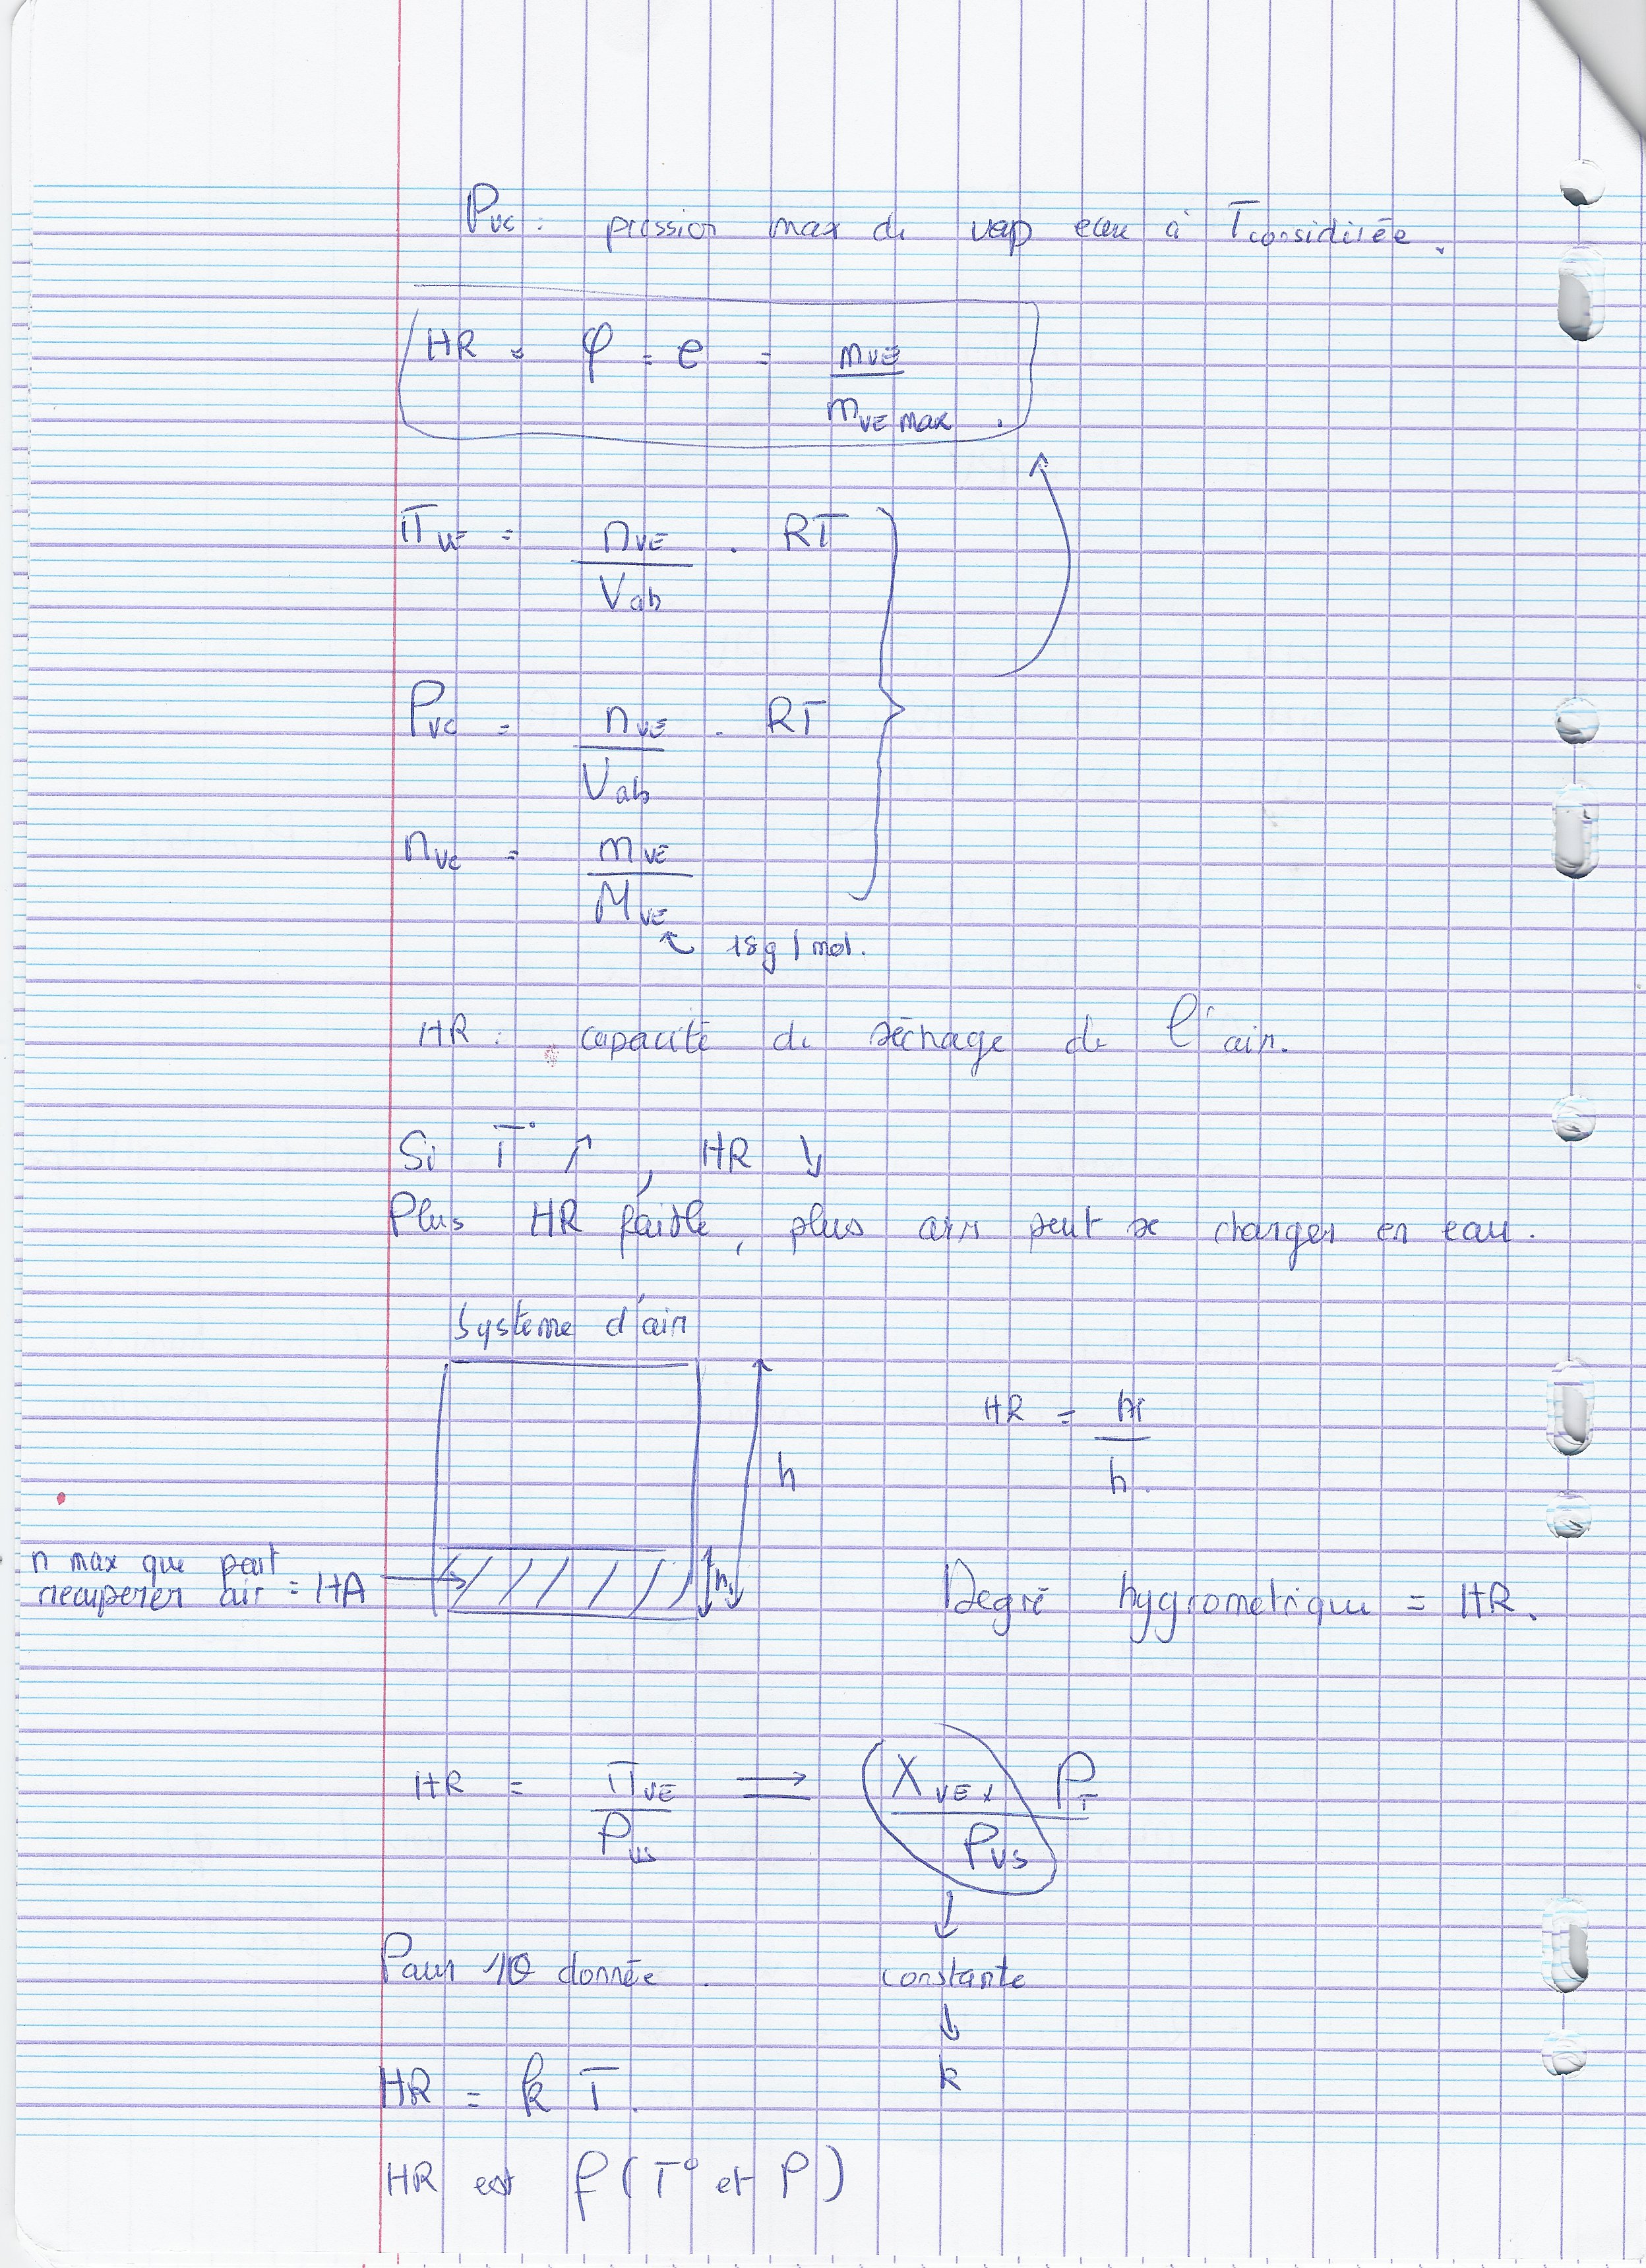 Pvs : pression max de vap eau à T considérée.
HR = φ = e = mVE / mVE max.
πVE = nVE / Vab . RT
Pvs = nVE / Vab . RT
nVE = mVE / MVE
18g / mol.
HR : capacité de séchage de l'air.
Si T° ↗, HR ↘
Plus HR faible, plus air peut se charger en eau.
Système d'air
HR = hi / h.
h
n max que peut
récupérer air = HA
hi
Degré hygrométrique = HR.
HR = πVE / Pvs ⟹ XVE x PT / Pvs
Pour 1θ donnée. constante
k
HR = k T.
HR est f (T° et P)